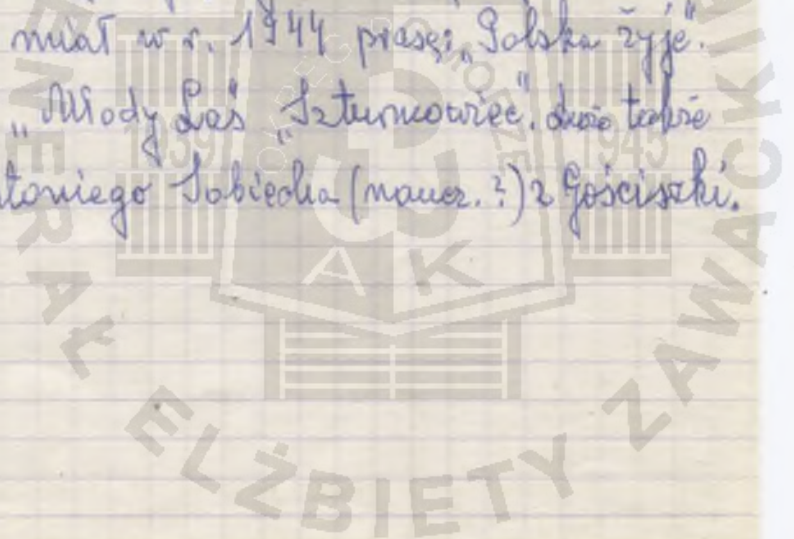 miał w r. 1944 prasę: „Polska żyje”.
„Młody Las” „Szturmowiec”. także
toniego Sobiecha (naucz.?) z Gościszki.
1939 1945
POMORZE
AK
GENERAŁ ELŻBIETY ZAWACKIEJ